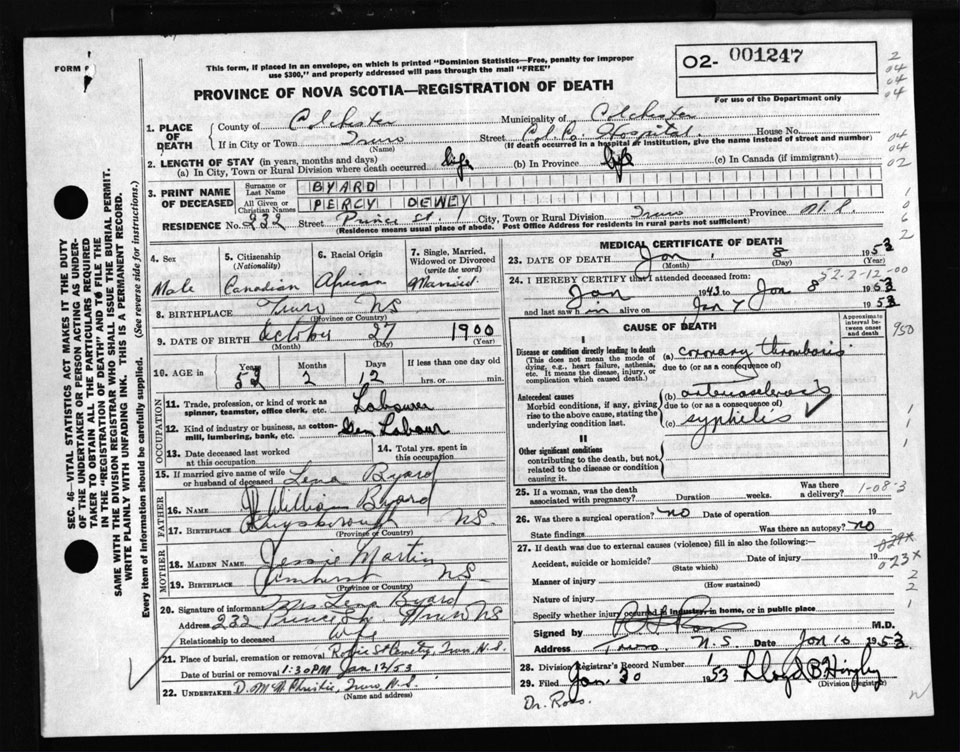 FORM
This form, if placed in an envelope, on which is printed "Dominion Statistics—Free, penalty for improper
use $300," and properly addressed will pass through the mail "FREE"
PROVINCE OF NOVA SCOTIA—REGISTRATION OF DEATH
O2- 001247
For use of the Department only
2
04
04
04
04
04
02
1. PLACE OF DEATH
County of Colchester Municipality of Colchester
If in City or Town Truro Street Col. Co. Hospital. House No.
(Name) (If death occurred in a hospital or institution, give name instead of street and number)
2. LENGTH OF STAY (in years, months and days)
(a) In City, Town or Rural Division where death occurred life (b) In Province life (c) In Canada (if immigrant)
3. PRINT NAME OF DECEASED
Surname or Last Name BYARD
All Given or Christian Names PERCY DEWEY
RESIDENCE No. 232 Street Prince St. City, Town or Rural Division Truro Province N.S.
(Residence means usual place of abode. Post Office Address for residents in rural parts not sufficient)
4. Sex
Male
5. Citizenship
(Nationality)
Canadian
6. Racial Origin
African
7. Single, Married, Widowed or Divorced
(write the word)
Married
8. BIRTHPLACE Truro NS
(Province or Country)
9. DATE OF BIRTH October 27 1900
(Month) (Day) (Year)
10. AGE in Years Months Days If less than one day old
52 2 12 hrs. or min.
OCCUPATION
11. Trade, profession, or kind of work as spinner, teamster, office clerk, etc. Labourer
12. Kind of industry or business, as cotton-mill, lumbering, bank, etc. Gen Labour
13. Date deceased last worked at this occupation
14. Total yrs. spent in this occupation
15. If married give name of wife or husband of deceased Lena Byard
FATHER
16. NAME William Byard
17. BIRTHPLACE Guysborough NS.
(Province or Country)
MOTHER
18. MAIDEN NAME Jessie Martin
19. BIRTHPLACE Amherst NS
(Province or Country)
20. Signature of informant Mrs Lena Byard
Address 232 Prince St Truro NS
Relationship to deceased Wife
21. Place of burial, cremation or removal Robie St Cemetery, Truro, N.S.
Date of burial or removal 1:30PM Jan 12/53
22. UNDERTAKER D. McM Christie, Truro N.S.
(Name and address)
MEDICAL CERTIFICATE OF DEATH
23. DATE OF DEATH Jan. 8 1953
(Month) (Day) (Year)
24. I HEREBY CERTIFY that I attended deceased from: 52-2-12-00
Jan 1943 to Jan 8 1953
and last saw him alive on Jan 7 1953
CAUSE OF DEATH
Approximate interval between onset and death
950
I
Disease or condition directly leading to death
(This does not mean the mode of dying, e.g., heart failure, asthenia, etc. It means the disease, injury, or complication which caused death.)
(a) coronary thrombosis
due to (or as a consequence of)
Antecedent causes
Morbid conditions, if any, giving rise to the above cause, stating the underlying condition last.
(b) arteriosclerosis
due to (or as a consequence of)
(c) syphilis ✓
II
Other significant conditions
contributing to the death, but not related to the disease or condition causing it.
25. If a woman, was the death associated with pregnancy? Duration weeks. Was there a delivery?
1-08-3
26. Was there a surgical operation? no Date of operation 19
State findings Was there an autopsy? no
27. If death was due to external causes (violence) fill in also the following:—
Accident, suicide or homicide? Date of injury 19
(State which)
023x
Manner of injury
(How sustained)
Nature of injury
Specify whether injury occurred in industry, in home, or in public place
Signed by Ross M.D.
Address Truro N.S. Date Jan 10 1953
28. Division Registrar's Record Number 1
29. Filed Jan. 20 1953 Lloyd B
(Division Registrar)
Dr. Ross.
SEC. 46—VITAL STATISTICS ACT MAKES IT THE DUTY
OF THE UNDERTAKER OR PERSON ACTING AS UNDER-
TAKER TO OBTAIN ALL THE PARTICULARS REQUIRED
IN THE "REGISTRATION OF DEATH" AND TO FILE THE
SAME WITH THE DIVISION REGISTRAR WHO SHALL ISSUE THE BURIAL PERMIT.
WRITE PLAINLY WITH UNFADING INK. THIS IS A PERMANENT RECORD.
Every item of information should be carefully supplied. (See reverse side for instructions.)